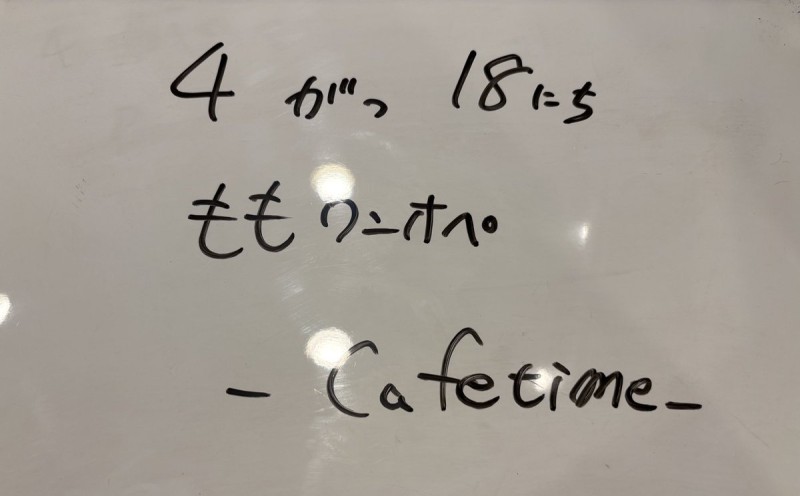 4がつ 18にち
ももワンオペ
- Cafetime -